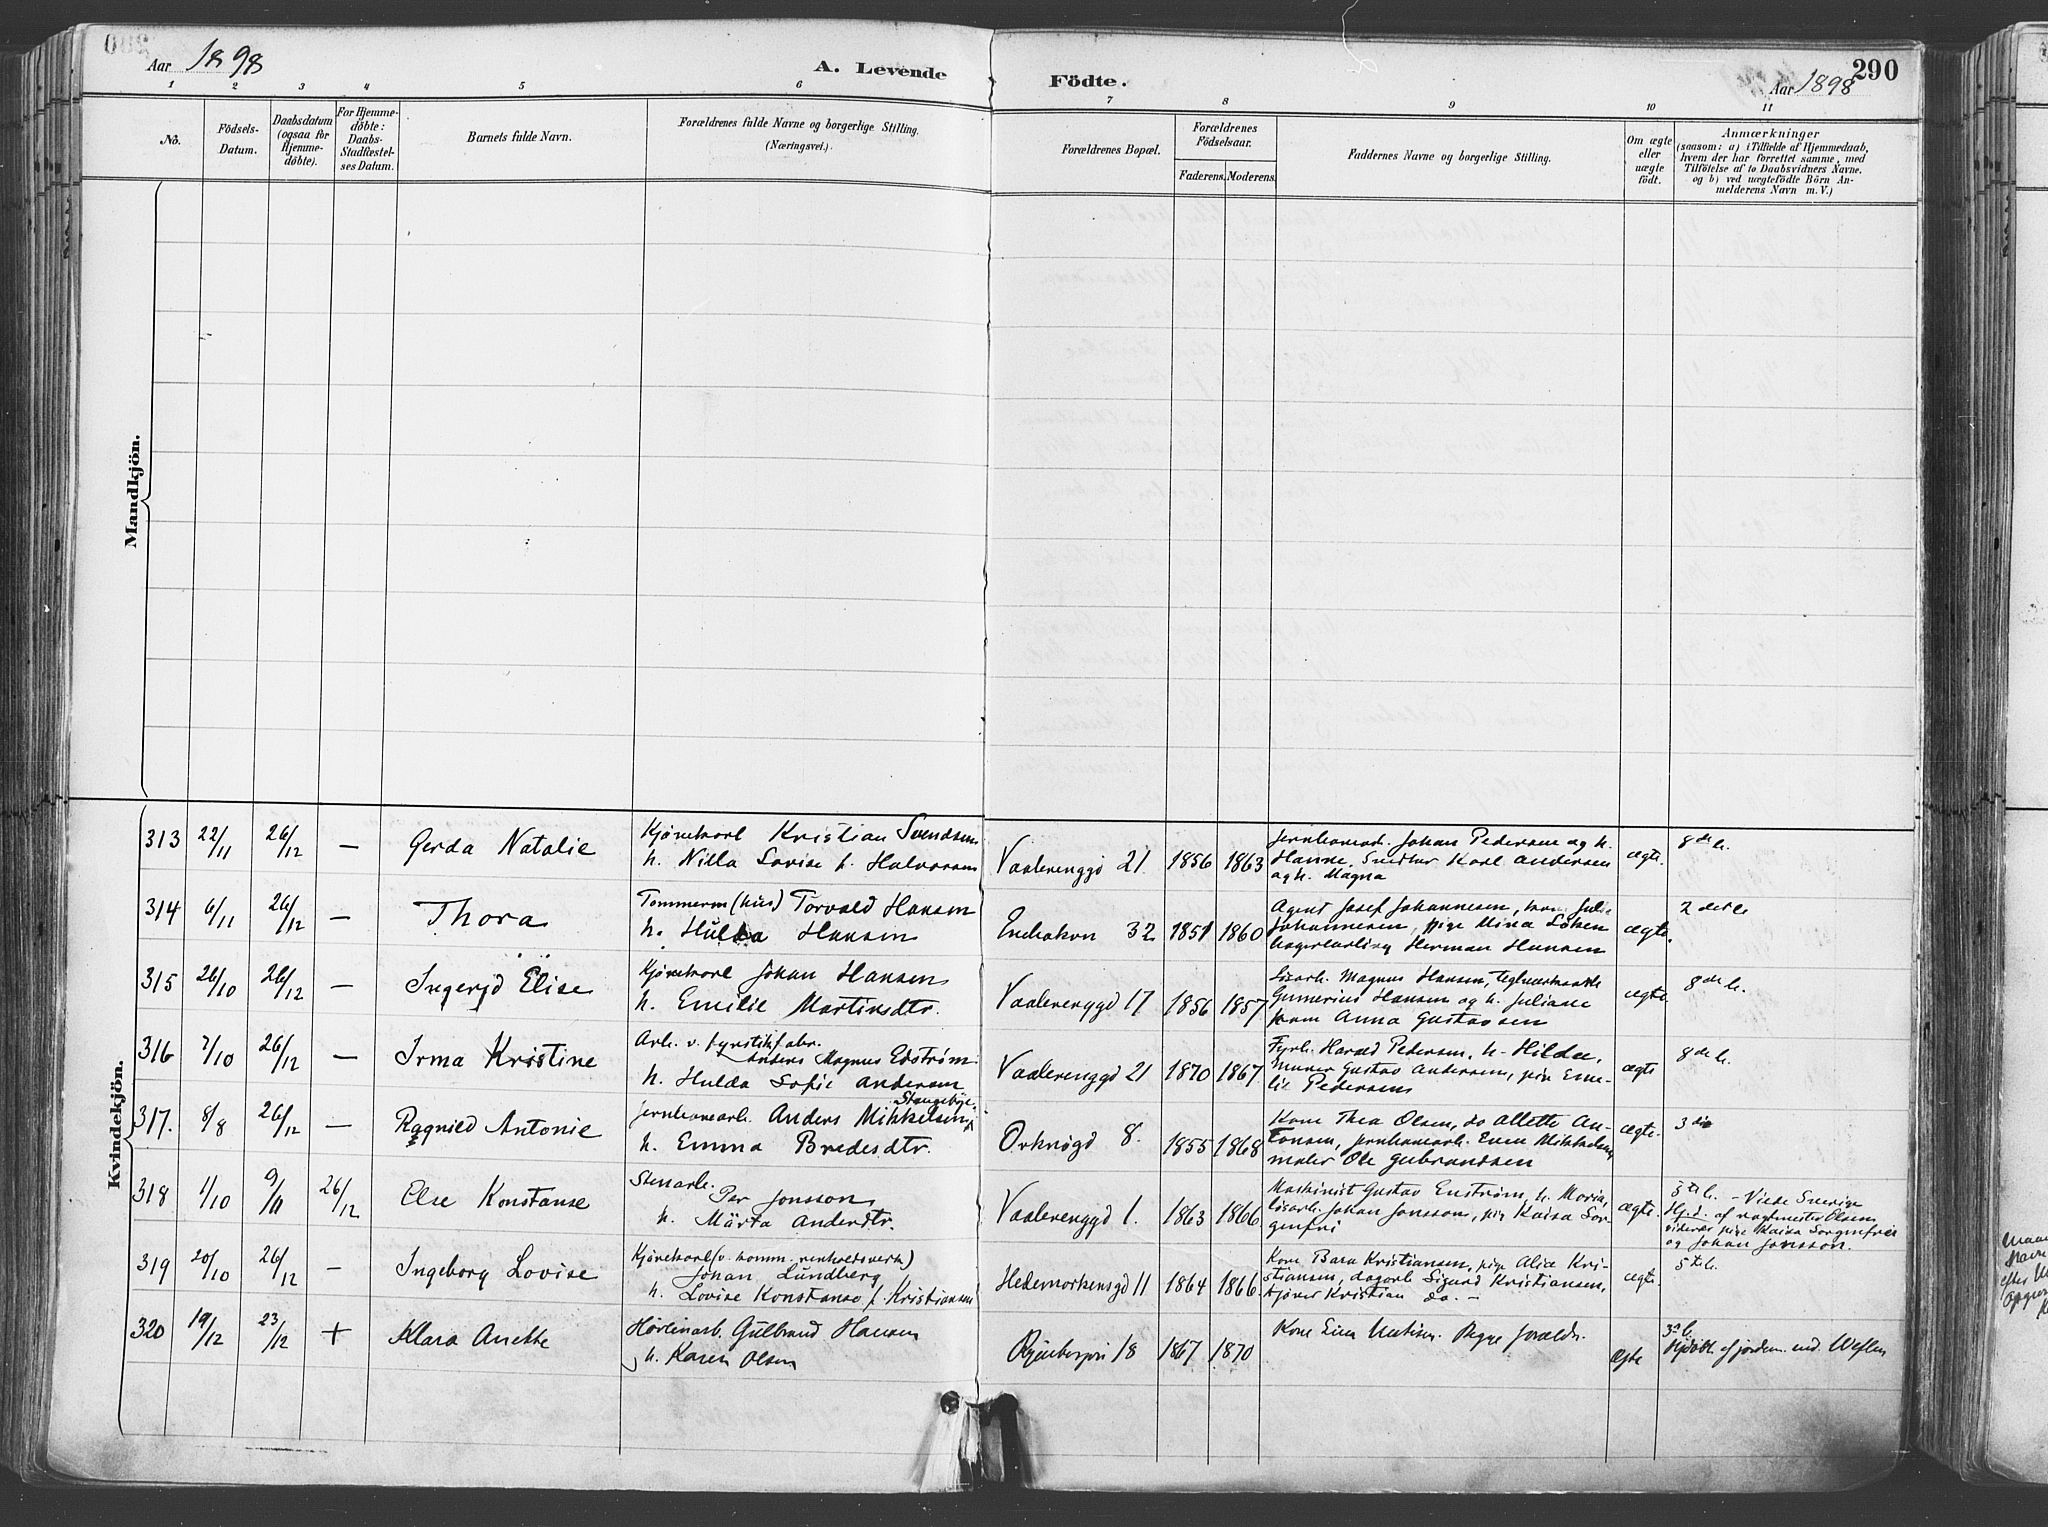 Aar 1898
A. Levende
Födte.
Aar 1898
290
1 2 3 4 5 6 7 8 9 10 11
No.
Födsels-
Datum.
Daabsdatum
(ogsaa for
Hjemme-
döbte).
For Hjemme-
döbte:
Daabs-
Stadfæstel-
ses Datum.
Barnets fulde Navn.
Forældrenes fulde Navne og borgerlige Stilling.
(Næringsvei.)
Forældrenes Bopæl.
Forældrenes
Födselsaar.
Faderens. Moderens.
Faddernes Navne og borgerlige Stilling.
Om ægte
eller
uægte
födt.
Anmærkninger
(saasom: a) i Tilfælde af Hjemmedaab,
hvem der har forrettet samme, med
Tilföielse af to Daabsvidners Navne,
og b) ved uægtefödte Börn An-
melderens Navn m. V.)
Mandkjön.
Kvindekjön.
313 22/11 26/12 — Gerda Natalie
Kjørekarl Kristian Svendsen
h. Nilla Lovise f. Halvorsen
Vaalerenggd 21. 1856 1863
Johan Pedersen og h.
Hanne, Karl Andersen
og h. Magna
ægte. 8de b.
314 6/11 26/12 — Thora
Tømmerm (hus) Torvald Hansen
h. Hulda Hansen
32 1851 1860
Agent Josef Johannesen, kone Julie
Johannesen, pige Mina
Herman Hansen
ægte.
315 26/10 26/12 — Ingerjd Elise
Kjørekarl Johan Hansen
h. Emilie Martinsdtr.
Vaalerenggd 17 1856 1857
Løsarb. Magnus Hansen,
Gunnerius Hansen og h. Juliane
kone Anna Gustavsen
ægte 8de b.
316 7/10 26/12 — Irma Kristine
Arb. v. fyrstikfabr.
Anders Magnus Edstrøm
h. Hulda Sofie Andersen
Vaalerenggd 21 1870 1867
Harald Pedersen, h. Hilda,
Murer Gustav Andersen, pige Eme-
lie Pedersen
ægte 8de b.
317. 8/8 26/12 — Ragnild Antonie
Jernbanearb. Anders Mikkelsen
h. Emma Bredesdtr.
Orknøgd 8. 1855 1868
Kone Thea Olsen, do Alette An-
tonsen, jernbanearb. Even Mikkelsen
maler Ole Gubrandsen
ægte.
318 1/10 9/11 26/12 Else Konstanse
Stenarb.
Per Jonsson
h. Märta Andersdtr.
Vaalerenggd 1. 1863 1866
Maskinist Gustav Enstrøm, h. Maria,
løsarb. Johan Jonsson, pige Kaisa Sor-
genfri
ægte. 5te b. — Viede Sverige
Hj.d. af vagtmester Olsen
vidner pige Kaisa Sorgenfri
og Johan Jonsson.
319 20/10 26/12 — Ingeborg Lovise
Kjørekarl (v. komm. renholdsverk)
Johan Lundberg
h. Lovise Konstanse f. Kristiansen
Hedemarkensgd 11 1864 1866
Kone Bara Kristiansen, pige Alice Kri-
stiansen, dagarb. Sigurd Kristiansen,
kjører Kristian do. —
ægte. 5te b.
320 19/12 23/12 + Klara Anette
Gulbrand Hansen
h. Karen Olsen
18 1867 1870
Kone
Begge foræld.
Ægte 3de b.
af jordem.